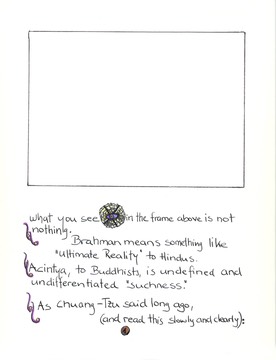 what you see in the frame above is not
nothing.
Brahman means something like
"ultimate Reality" to Hindus.
Acintya, to Buddhists, is undefined and
undifferentiated "suchness."
As Chuang-Tzu said long ago,
(and read this slowly and clearly):